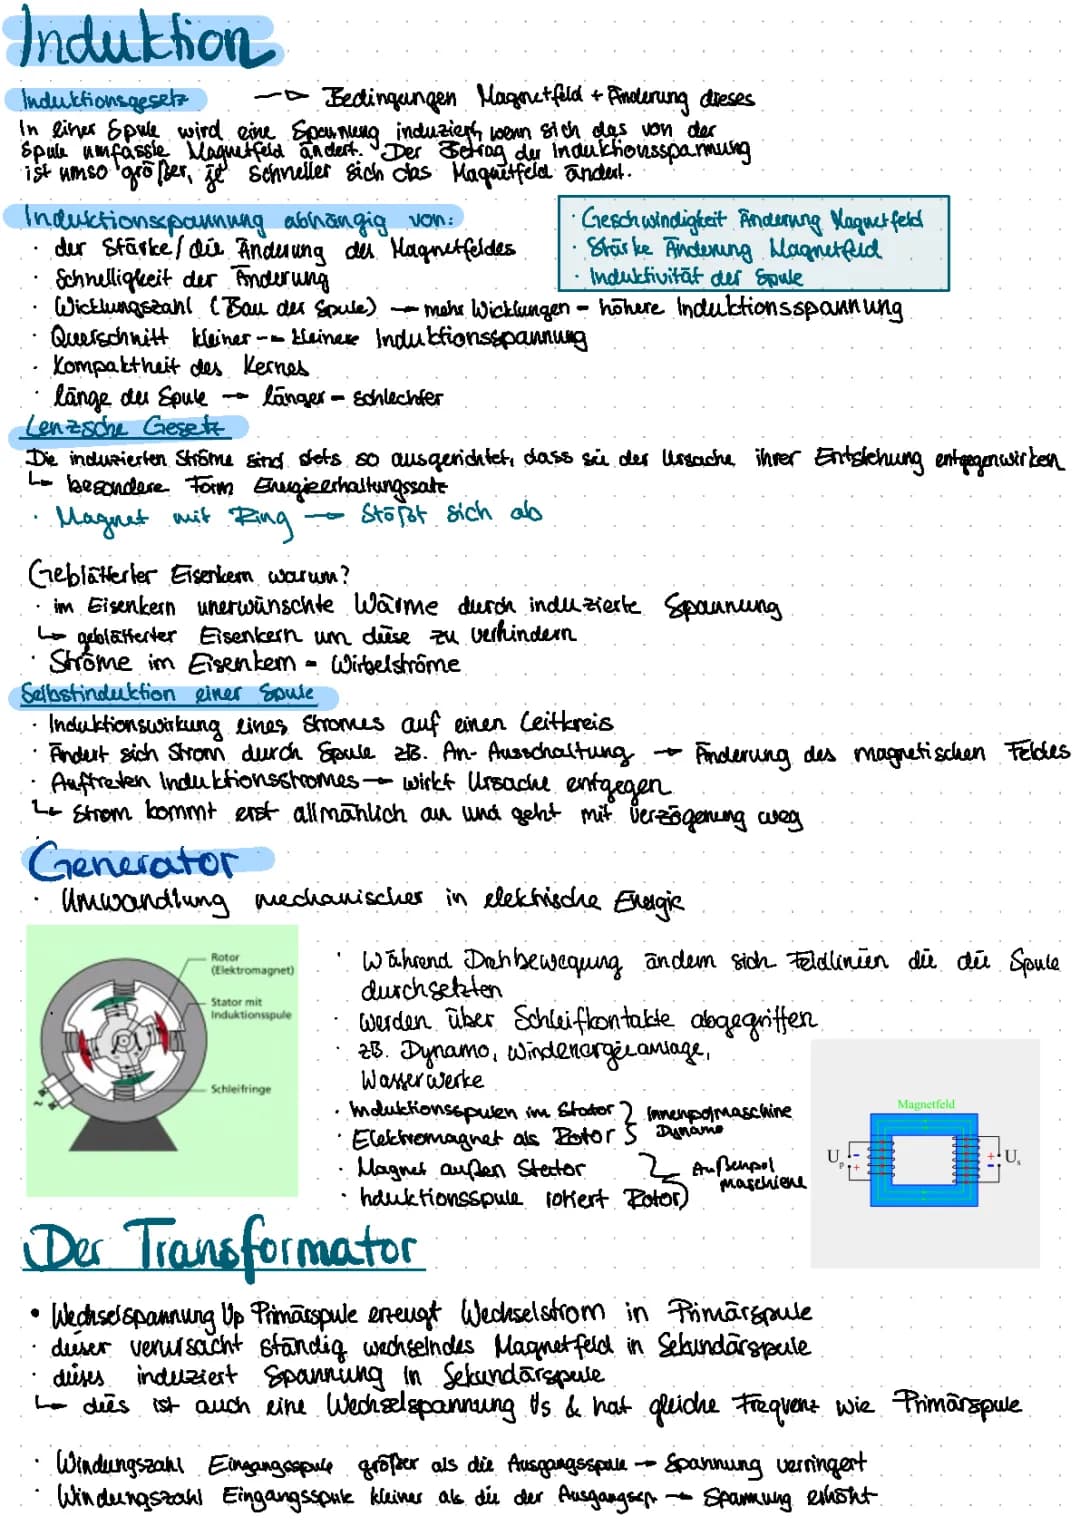 Induktion
Induktionsgesetz → Bedingungen Magnetfeld + Änderung dieses
In einer Spule wird eine Spannung induziert, wenn sich das von der
Spule umfasste Magnetfeld ändert. Der Betrag der Induktionsspannung
ist umso größer, je schneller sich das Magnetfeld ändert.
Induktionsspannung abhängig von:
· der Stärke/die Änderung des Magnetfeldes
· Schnelligkeit der Änderung
· Geschwindigkeit Änderung Magnetfeld
· Stärke Änderung Magnetfeld
· Induktivität der Spule
· Wicklungszahl (Bau der Spule) → mehr Wicklungen = höhere Induktionsspannung
· Querschnitt kleiner → kleinere Induktionsspannung
· Kompaktheit des Kernes
· länge der Spule → länger = schlechter
Lenzsche Gesetz
Die induzierten Ströme sind stets so ausgerichtet, dass sie der Ursache ihrer Entstehung entgegenwirken
↳ besondere Form Energieerhaltungssatz
· Magnet mit Ring → Stößt sich ab
Geblätterter Eisenkern warum?
· im Eisenkern unerwünschte Wärme durch induzierte Spannung
↳ geblätterter Eisenkern um diese zu verhindern
· Ströme im Eisenkern = Wirbelströme
Selbstinduktion einer Spule
· Induktionswirkung eines Stromes auf einen Leitkreis
· Ändert sich Strom durch Spule zB. An- Ausschaltung → Änderung des magnetischen Feldes
· Auftreten Induktionsstromes → wirkt Ursache entgegen
↳ Strom kommt erst allmählich an und geht mit Verzögerung weg
Generator
· Umwandlung mechanischer in elektrische Energie
Rotor
(Elektromagnet)
Stator mit
Induktionsspule
Schleifringe
· Während Drehbewegung ändern sich Feldlinien die die Spule
durchsetzten
· werden über Schleifkontakte abgegriffen
· zB. Dynamo, Windenergieanlage,
Wasserwerke
· Induktionsspulen im Stator } Innenpolmaschine
· Elektromagnet als Rotor Dynamo
· Magnet außen Stator } Außenpol
maschiene
· Induktionsspule rotiert Rotor)
Magnetfeld
Up - + + - Us
Der Transformator
• Wechselspannung Up Primärspule erzeugt Wechselstrom in Primärspule
· dieser verursacht ständig wechselndes Magnetfeld in Sekundärspule
· dieses induziert Spannung in Sekundärspule
↳ dies ist auch eine Wechselspannung Us & hat gleiche Frequenz wie Primärspule
· Windungszahl Eingangsspule größer als die Ausgangsspule → Spannung verringert
· Windungszahl Eingangsspule kleiner als die der Ausgangssp. → Spannung erhöht